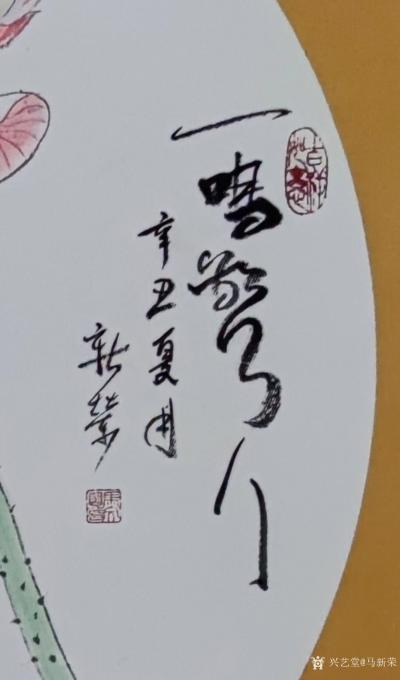 一鸣惊人
辛丑夏月
新荣
吉祥如意
兴艺堂@马新荣